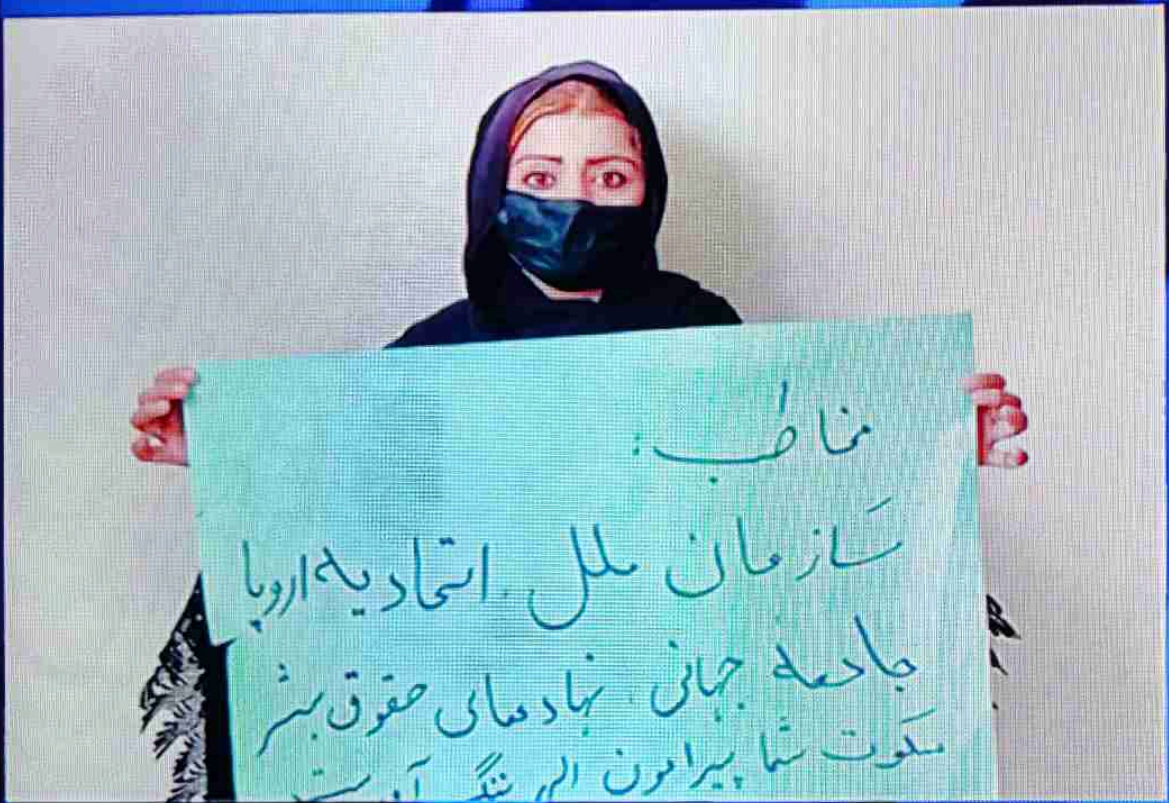 مخاطب:
سازمان ملل، اتحادیه اروپا
جامعه جهانی، نهادهای حقوق بشر
سکوت شما پیرامون الی ننگ آور است